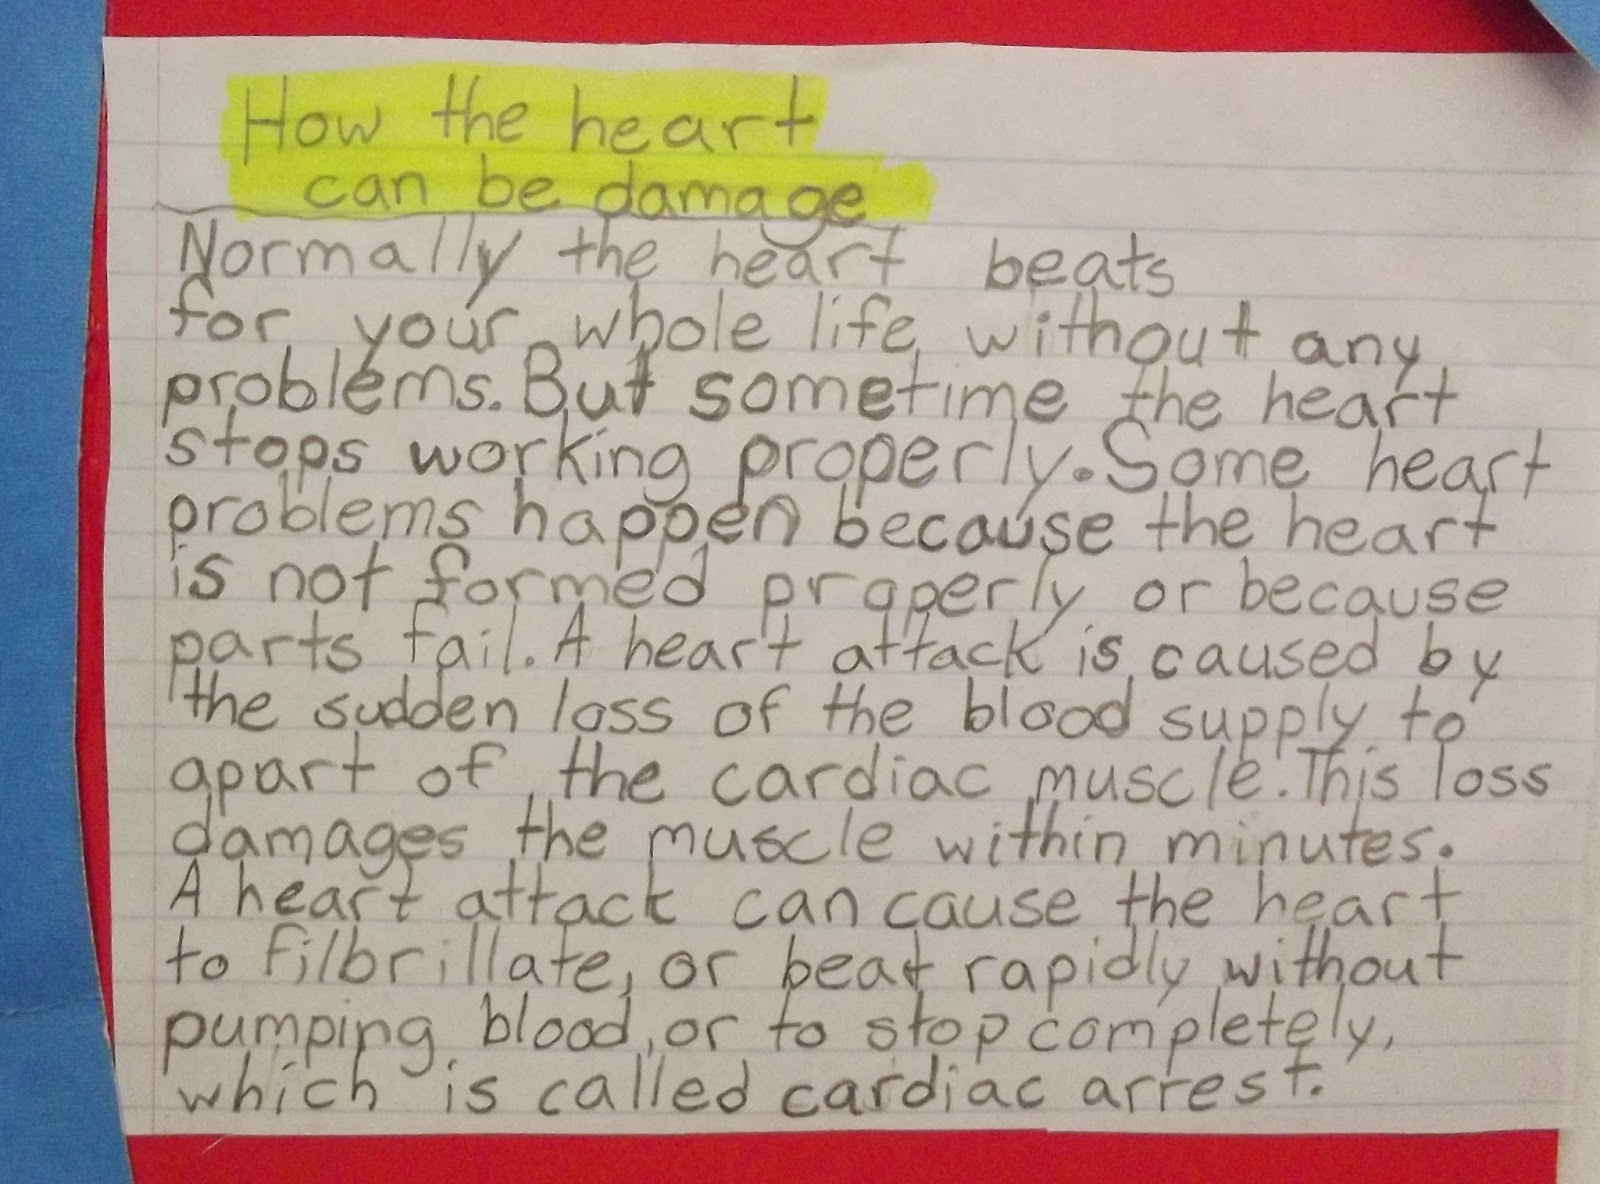 How the heart
can be damage
Normally the heart beats
for your whole life without any
problems. But sometime the heart
stops working properly. Some heart
problems happen because the heart
is not formed properly or because
parts fail. A heart attack is caused by
the sudden loss of the blood supply to
apart of the cardiac muscle. This loss
damages the muscle within minutes.
A heart attack can cause the heart
to filbrillate, or beat rapidly without
pumping blood, or to stop completely,
which is called cardiac arrest.